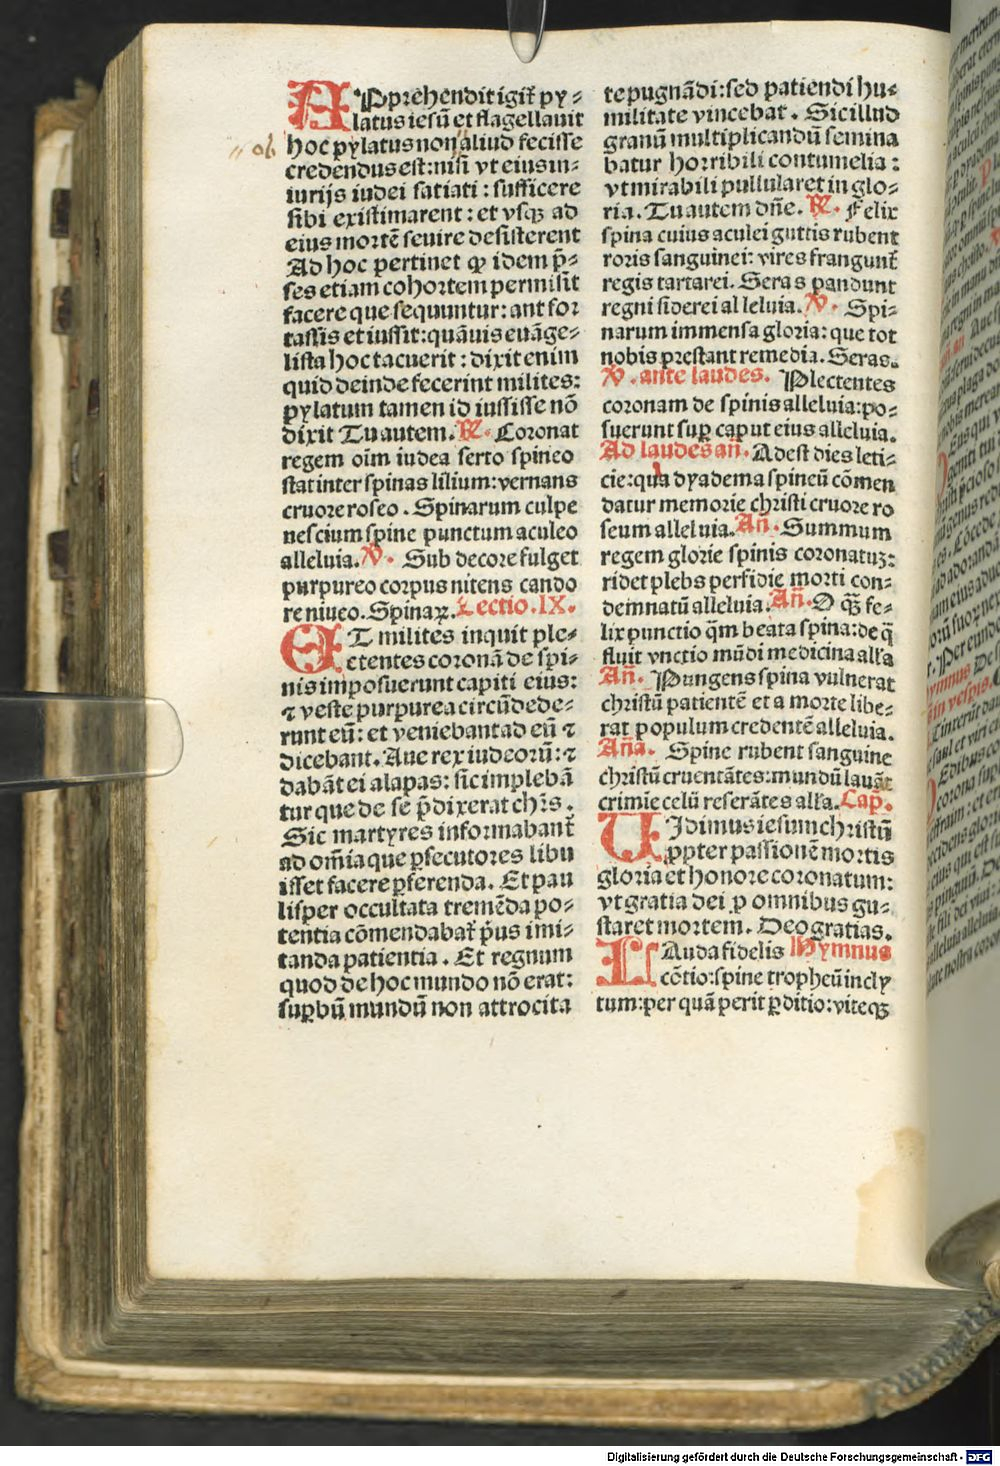 APprehendit igit̃ py⸗
latus iesũ et flagellauit
hoc pylatus non aliud fecisse
" ob
credendus est: nisi vt eius in⸗
iurijs iudei satiati: sufficere
sibi existimarent: et vsqꝫ ad
eius mortẽ seuire desisterent
Ad hoc pertinet ꝙ idem p̃⸗
ses etiam cohortem permisit
facere que sequuntur: an for
tassis et iussit: quãuis euãge⸗
lista hoc tacuerit: dixit enim
quid deinde fecerint milites:
pylatum tamen id iussisse nõ
dixit Tu autem. ℟. Coronat
regem oĩm iudea serto spineo
stat inter spinas lilium: vernans
cruore roseo. Spinarum culpe
nescium spine punctum aculeo
alleluia. ℣. Sub decore fulget
purpureo corpus nitens cando
re niueo. Spinaꝝ. Lectio. IX.
ET milites inquit ple⸗
ctentes coronã de spi⸗
nis imposuerunt capiti eius:
⁊ veste purpurea circũdede⸗
runt eũ: et veniebant ad eũ ⁊
dicebant. Aue rex iudeorũ: ⁊
dabãt ei alapas: sic implebã
tur que de se p̃dixerat chr̃s.
Sic martyres informabant̃
ad om̃ia que ꝑsecutores libu
isset facere ꝑferenda. Et pau
lisper occultata tremẽda po⸗
tentia cõmendabat̃ p̃us imi⸗
tanda patientia. Et regnum
quod de hoc mundo nõ erat:
suꝑbũ mundũ non attrocita
te pugnãdi: sed patiendi hu⸗
militate vincebat. Sic illud
granũ multiplicandũ semina
batur horribili contumelia:
vt mirabili pullularet in glo⸗
ria. Tu autem dñe. ℟. Felix
spina cuius aculei guttis rubent
roris sanguinei: vires frangunt̃
regis tartarei. Seras pandunt
regni siderei alleluia. ℣. Spi⸗
narum immensa gloria: que tot
nobis prestant remedia. Seras.
℣. ante laudes. Plectentes
coronam de spinis alleluia: po⸗
suerunt suꝑ caput eius alleluia.
Ad laudes añ. Adest dies leti⸗
cie: qua dyadema spineũ cõmen
datur memorie christi cruore ro
seum alleluia. Añ. Summum
regem glorie spinis coronatuꝫ:
ridet plebs perfidie morti con⸗
demnatũ alleluia. Añ. O qꝫ̃ fe⸗
lix punctio q̃m beata spina: de q̃
fluit vnctio mũdi medicina alľa
Añ. Pungens spina vulnerat
christũ patientẽ et a morte libe⸗
rat populum credentẽ alleluia.
Aña. Spine rubent sanguine
christũ cruentãtes: mundũ lauãt
crimie celũ reserãtes alľa. Cap̃.
UIdimus iesum christũ
ꝓpter passionẽ mortis
gloria et honore coronatum:
vt gratia dei ꝓ omnibus gu⸗
staret mortem. Deo gratias.
LAuda fidelis Hymnus
cõtio: spine tropheũ incly
tum: per quã perit ꝑditio: viteqꝫ
Digitalisierung gefördert durch die Deutsche Forschungsgemeinschaft - DFG